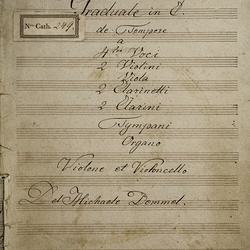 Graduale in D.
No Cath. 249.
de Tempore
a
4tro Voci
2 Violini
Viola
2 Clarinetti
2 Clarini
Tympani
Organo
Violone et Violoncello
Del Michaele Demmel.